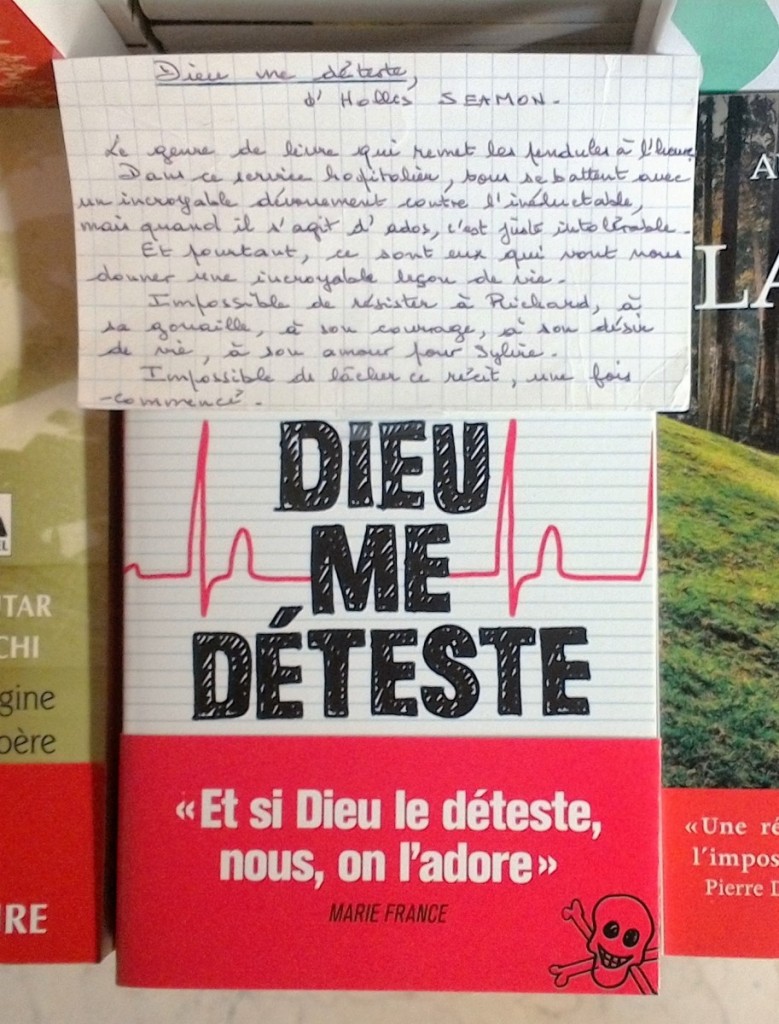 Dieu me déteste,
d' Holles SEAMON.
Le genre de livre qui remet les pendules à l'heure
Dans ce service hospitalier, tous se battent avec
un incroyable dévouement contre l'inéluctable,
mais quand il s'agit d'ados, c'est juste intolérable.
Et pourtant, ce sont eux qui vont nous
donner une incroyable leçon de vie.
Impossible de résister à Richard, à
sa gouaille, à son courage, à son désir
de vie, à son amour pour Sylvie.
Impossible de lâcher ce récit, une fois
-commencé.
DIEU
ME
DÉTESTE
« Et si Dieu le déteste,
nous, on l'adore »
MARIE FRANCE
UTAR
CHI
gine
père
IRE
A
LA
« Une ré
l'impos
Pierre D